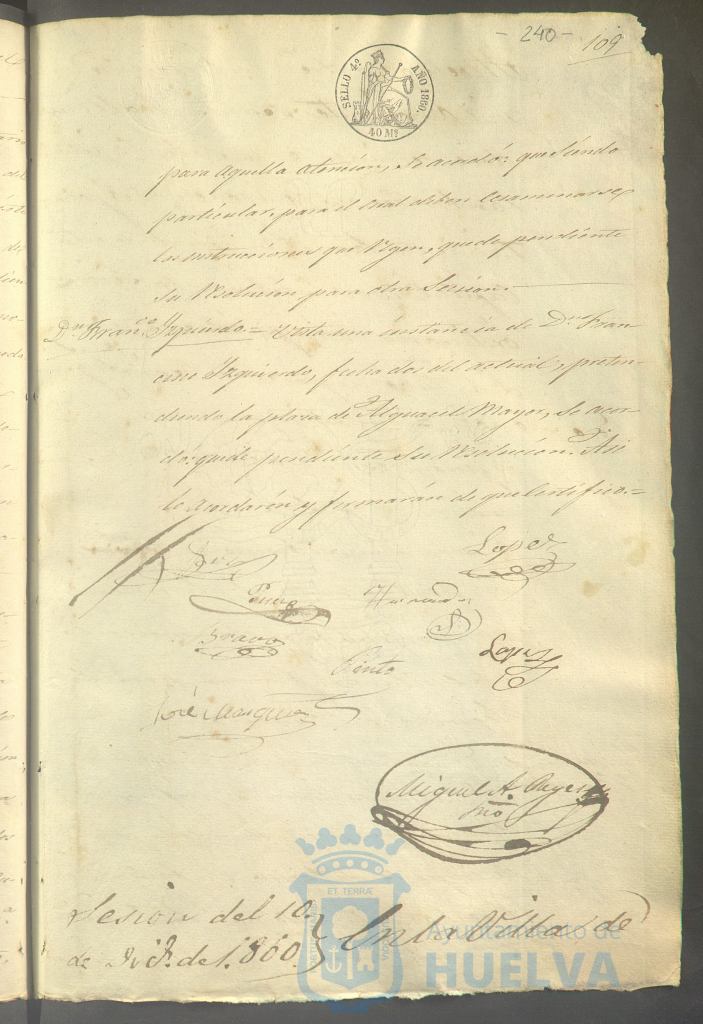 - 240 -
109
SELLO 4º AÑO 1860.
40 Ms
para aquella atencion, Se acordó: que siendo
particular, para el cual deben Ecsaminarse
las instrucciones que rigen, quede pendiente
su resolucion para otra Sesion.
Dn. Franco. Izquierdo = Vista una instancia de Dn. Fran-
cisco Izquierdo, fecha dos del actual, preten-
diendo la plaza de Alguacil Mayor, se acor-
dó: quede pendiente su resolucion. Asi
lo acordarón y firmarán de que Certifico.=
Lopez
Perez
Bravo
Pinto
Lopez
José Marquez
Miguel A.
Srio
Sesion del 10
de de 1.860.
En la Villa de
ET TERRÆ
Ayuntamiento de
HUELVA